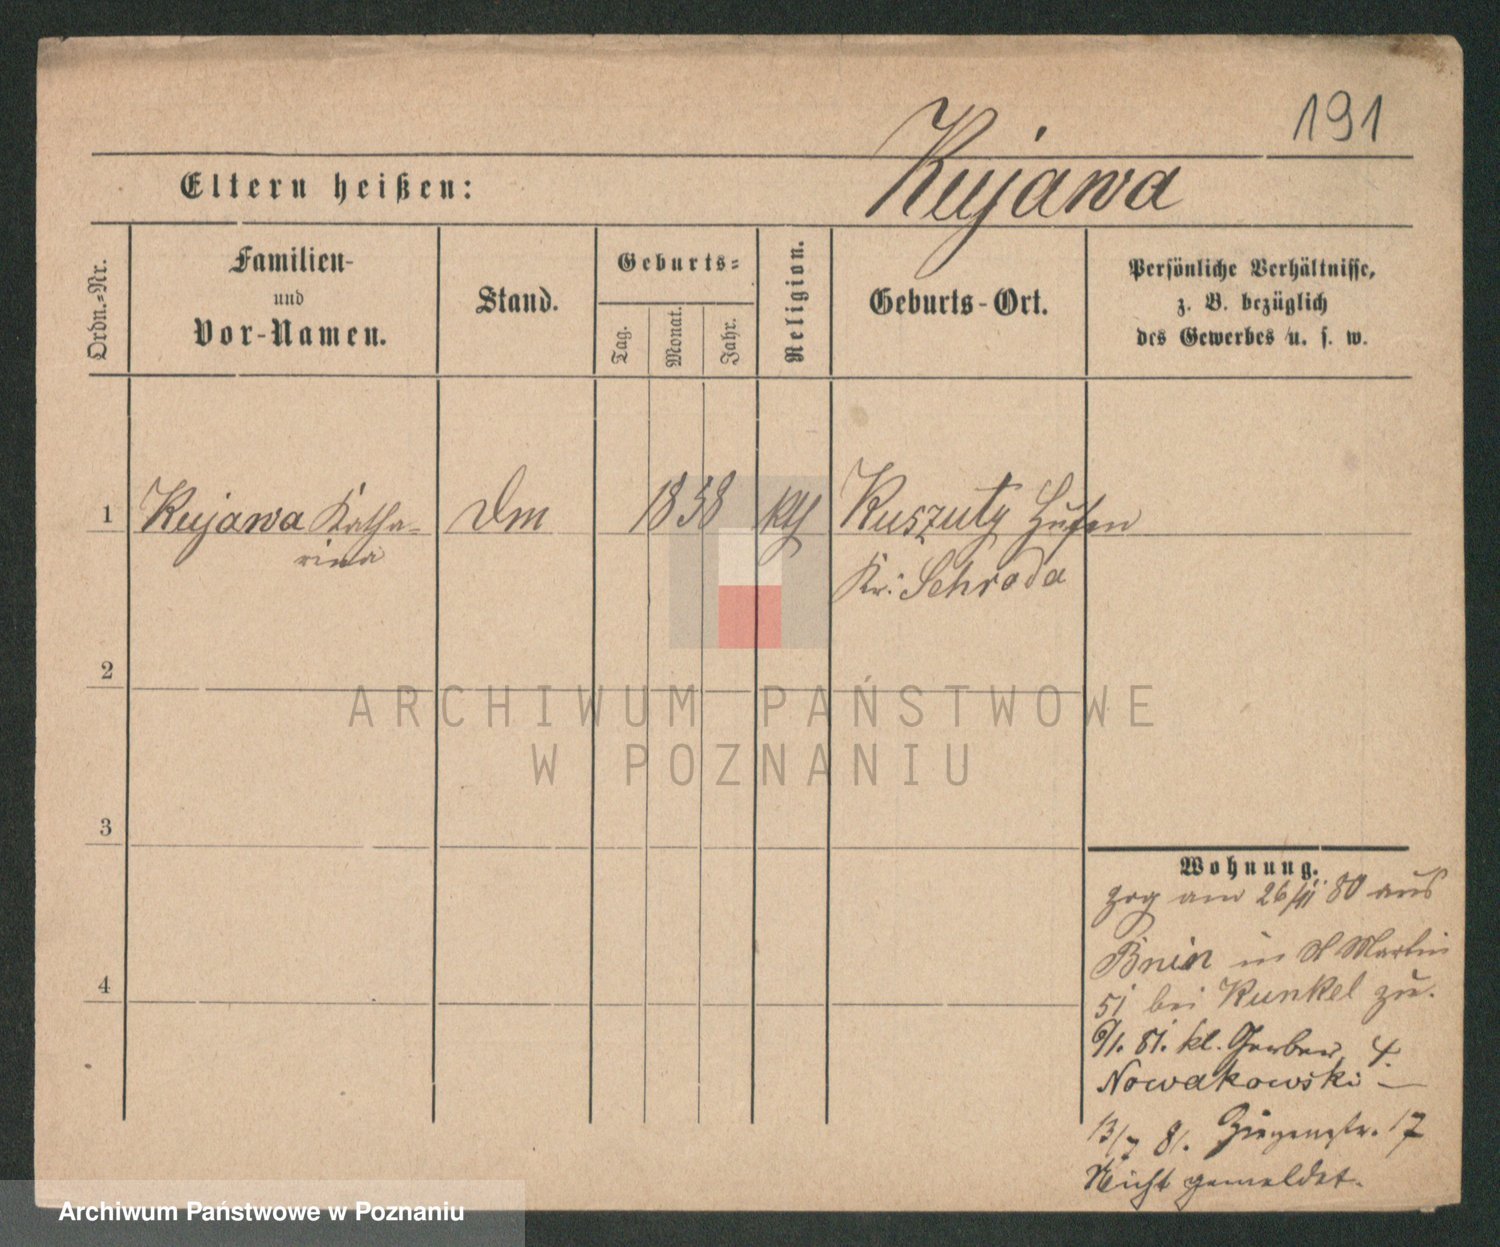 191
Kujawa
Eltern heißen:
Ordn.=Nr.
Familien-
und
Vor-Namen.
Stand.
Geburts=
Tag.
Monat.
Jahr.
Religion.
Geburts-Ort.
Persönliche Verhältnisse,
z. B. bezüglich
des Gewerbes u. s. w.
1 Kujawa Katha= Dm 1838 kth Kuszuty Hufen
rina Kr: Schroda
2
3
4
Wohnung.
zog am 26/11 80 aus
Bnin in St Martin
51 bei Kunkel zu.
6/1. 81. kl. Gerber 4.
Nowakowski —
13/7 81. Ziegenstr. 17
Nicht gemeldet.
ARCHIWUM PAŃSTWOWE
W POZNANIU
Archiwum Państwowe w Poznaniu